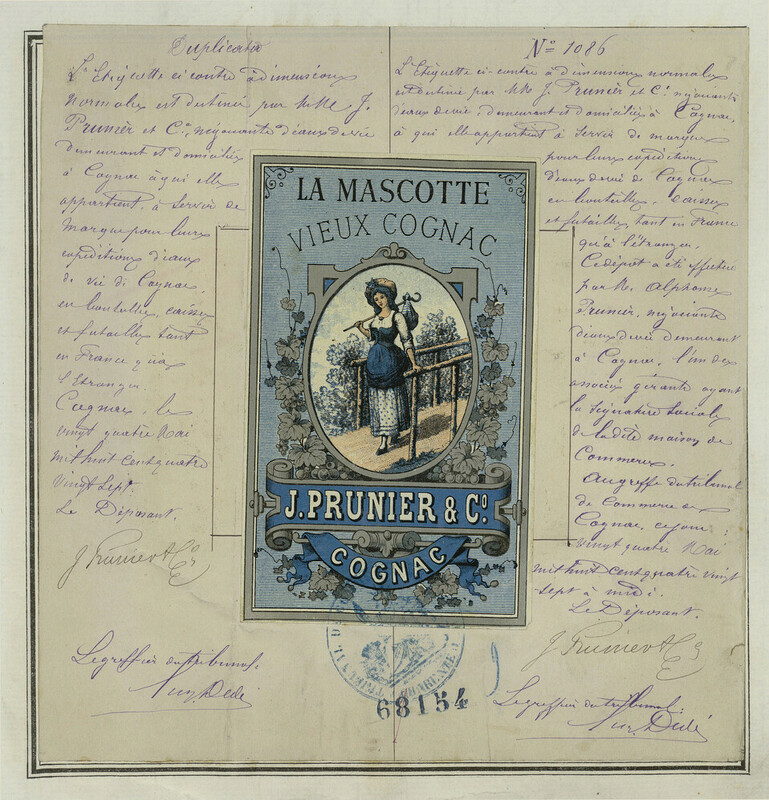 Duplicata
L'Etiquette ci contre à dimensions
normales est destinée par MM J.
Prunier et Cie, négociants d'eaux de vie
demeurant et domiciliés
à Cognac à qui elle
appartient, à servir de
marque pour leurs
expéditions d'eaux
de vie de Cognac,
en bouteilles, caisses
et futailles tant
en France qu'à
l'Etranger.
Cognac, le
vingt quatre Mai
mil huit cent quatre
vingt sept.
Le Déposant.
J. Prunier & Co
Le greffier du tribunal
Aug. Dedé
No 1086
L'Etiquette ci-contre à dimensions normales
est destinée par MM J. Prunier et Cie négociants
d'eaux de vie, demeurant et domiciliés à Cognac,
à qui elle appartient à servir de marque
pour leurs expéditions
d'eaux de vie de Cognac
en bouteilles, caisses
et futailles, tant en France
qu'à l'étranger.
Ce dépôt a été effectué
par M. Alphonse
Prunier, négociant
d'eaux de vie demeurant
à Cognac, l'un des
associés gérants ayant
la signature sociale
de ladite maison de
Commerce.
Au greffe du tribunal
de Commerce de
Cognac, ce jour
vingt quatre Mai
mil huit cent quatre vingt
sept à midi.
Le Déposant.
J. Prunier & Co
Le greffier du tribunal:
Aug. Dedé
LA MASCOTTE
VIEUX COGNAC
J. PRUNIER & Co.
COGNAC
68154